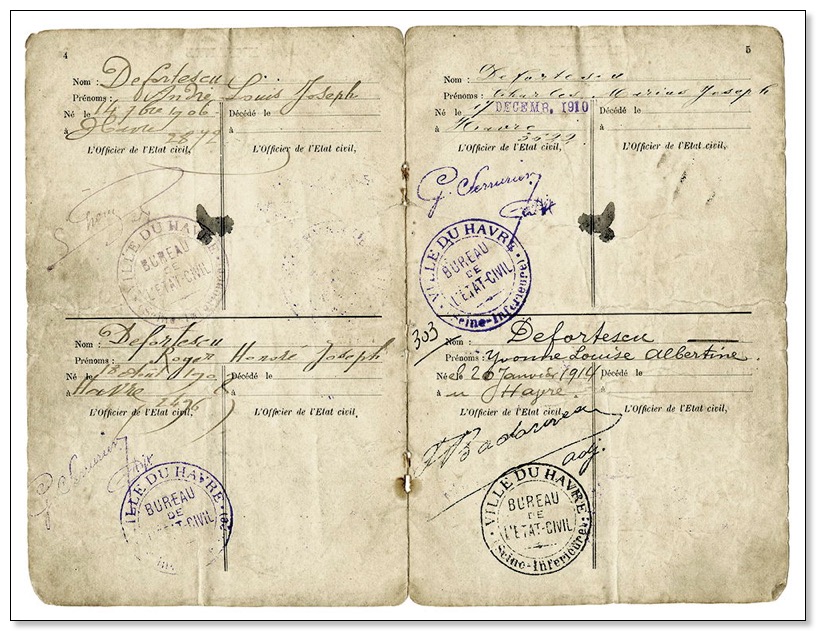 4
Nom: Defortescu
Prénoms: André Louis Joseph
Né le 14 7bre 1906 Décédé le
à Havre à
L'Officier de l'Etat civil, L'Officier de l'Etat civil,
VILLE DU HAVRE
BUREAU
DE
L'ÉTAT-CIVIL
Nom: Defortescu
Prénoms: Roger Honoré Joseph
Né le 18 Décédé le
à Havre à
2496
L'Officier de l'Etat civil, L'Officier de l'Etat civil,
G Serrurier
VILLE DU HAVRE
BUREAU
DE
L'ÉTAT-CIVIL
5
Nom: Defortescu
Prénoms: Charles Marius Joseph
Né le 17 DECEMB. 1910 Décédé le
à Havre à
L'Officier de l'Etat civil, L'Officier de l'Etat civil,
G Serrurier
VILLE DU HAVRE
BUREAU
DE
L'ÉTAT-CIVIL
(Seine-Inférieure)
303
Nom: Defortescu
Prénoms: Yvonne Louise Albertine.
Née le 26 Janvier 1914 Décédé le
au Havre à
L'Officier de l'Etat civil, L'Officier de l'Etat civil,
adj.
VILLE DU HAVRE
BUREAU
DE
L'ÉTAT-CIVIL
(Seine-Inférieure)